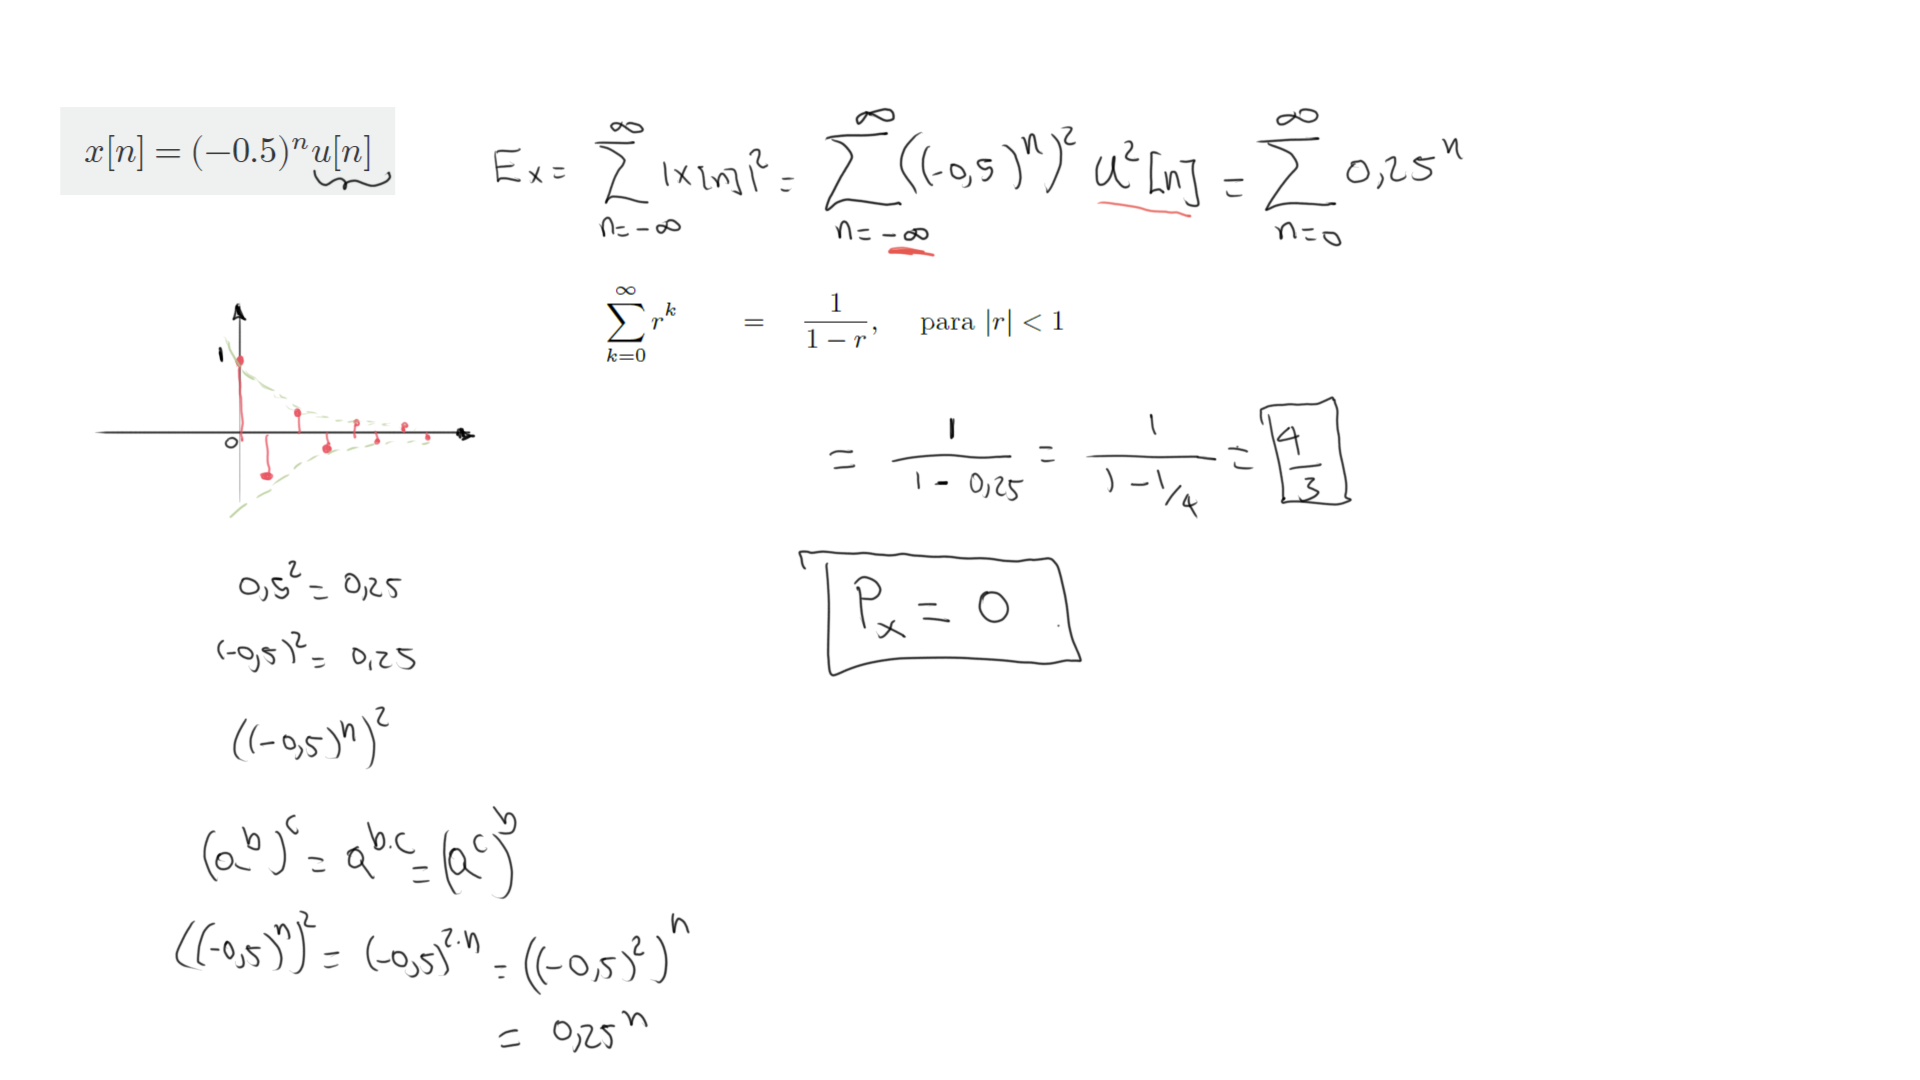 x[n] = (−0.5)ⁿu[n]
Eₓ = ∑_{n=-∞}^{∞} |x[n]|² = ∑_{n=-∞}^{∞} ((-0,5)ⁿ)² u²[n] = ∑_{n=0}^{∞} 0,25ⁿ
∑_{k=0}^{∞} r^k = 1/(1 − r), para |r| < 1
1
0
= 1/(1 - 0,25) = 1/(1 - 1/4) = 4/3
Pₓ = 0
0,5² = 0,25
(-0,5)² = 0,25
((-0,5)ⁿ)²
(a^b)^c = a^{b·c} = (a^c)^b
((-0,5)ⁿ)² = (-0,5)^{2·n} = ((-0,5)²)ⁿ
= 0,25ⁿ